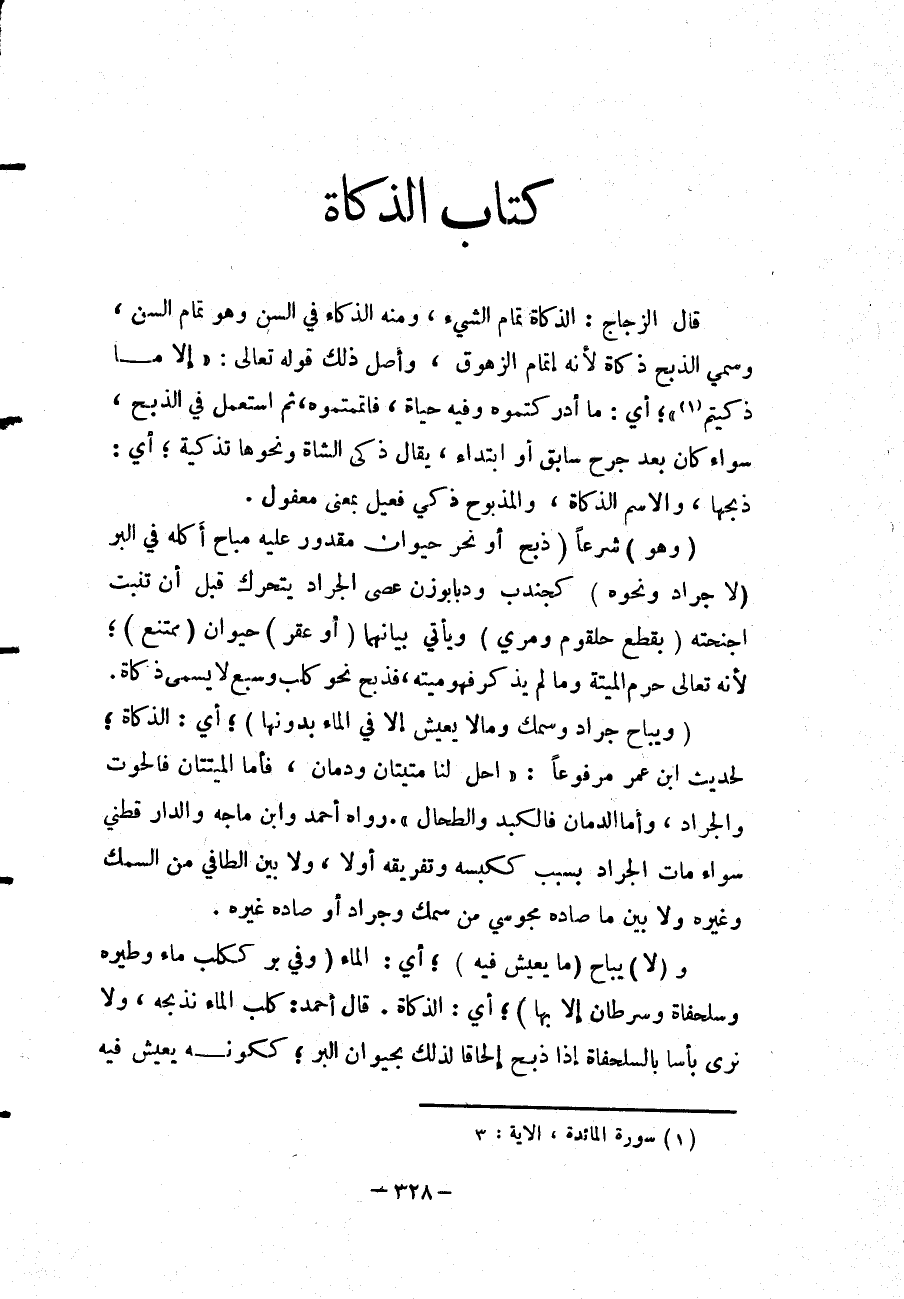 كتاب الذكاة
قال الزجاج : الذكاة تمام الشيء ، ومنه الذكاء في السن وهو تمام السن ،
وسمي الذبح ذكاة لأنه اتمام الزهوق ، وأصل ذلك قوله تعالى : « إلا مـــا
ذكيتم (١) » ؛ أي : ما أدركتموه وفيه حياة ، فاتممتموه، ثم استعمل في الذبح ،
سواء كان بعد جرح سابق أو ابتداء ، يقال ذكى الشاة ونحوها تذكية ؛ أي :
ذبحها ، والاسم الذكاة ، والمذبوح ذكي فعيل بمعنى مفعول .
( وهو ) شرعاً ( ذبح أو نحر حيوان مقدور عليه مباح أكله في البر
(لا جراد ونحوه ) كجندب ودبابوزن عصى الجراد يتحرك قبل أن تنبت
اجنحته ( بقطع حلقوم ومري ) ويأتي بيانهما ( أو عقر ) حيوان ( ممتنع ) ؛
لأنه تعالى حرم الميتة وما لم يذكر فهو ميتة ، فذبح نحو كلب وسبع لا يسمى ذكاة .
( ويباح جراد وسمك ومالا يعيش إلا في الماء بدونها ) ؛ أي : الذكاة ؛
لحديث ابن عمر مرفوعاً : « احل لنا متيتان ودمان ، فأما الميتتان فالحوت
والجراد ، وأما الدمان فالكبد والطحال » . رواه أحمد وابن ماجه والدار قطني
سواء مات الجراد بسبب ككبسه وتفريقه أولا ، ولا بين الطافي من السمك
وغيره ولا بين ما صاده مجوسي من سمك وجراد أو صاده غيره .
و (لا) يباح (ما يعيش فيه ) ؛ أي : الماء ( وفي بر ككلب ماء وطيره
وسلحفاة وسرطان إلا بها ) ؛ أي : الذكاة . قال أحمد: كلب الماء نذبحه ، ولا
نرى بأسا بالسلحفاة إذا ذبح إلحاقا لذلك بحيوان البر ؛ ككونـــه يعيش فيه
(١) سورة المائدة ، الاية : ٣
– ٣٢٨ –